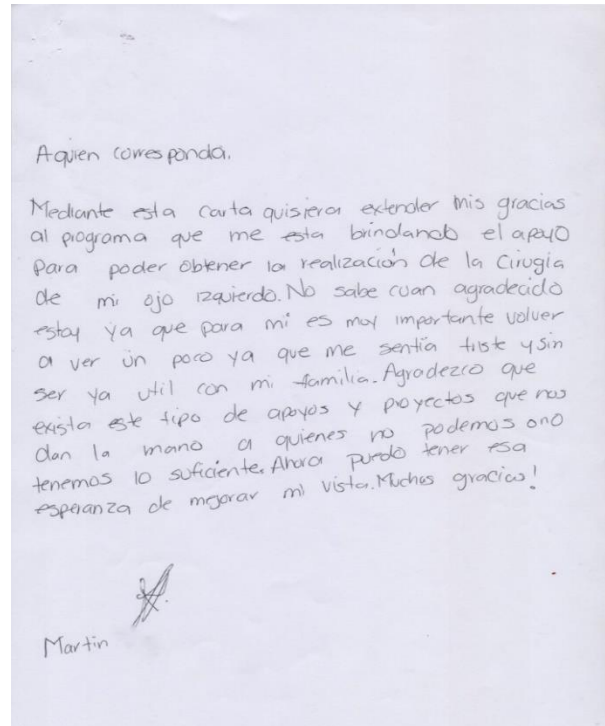 Aquien corresponda.
Mediante esta carta quisiera extender mis gracias
al programa que me esta brindando el apoyo
para poder obtener la realización de la Cirugia
de mi ojo izquierdo. No sabe cuan agradecido
estoy ya que para mi es muy importante volver
a ver un poco ya que me sentía triste y sin
ser ya util con mi familia. Agradezco que
exista este tipo de apoyos y proyectos que nos
dan la mano a quienes no podemos ono
tenemos lo suficiente. Ahora puedo tener esa
esperanza de mejorar mi vista. Muchas gracias!
Martin